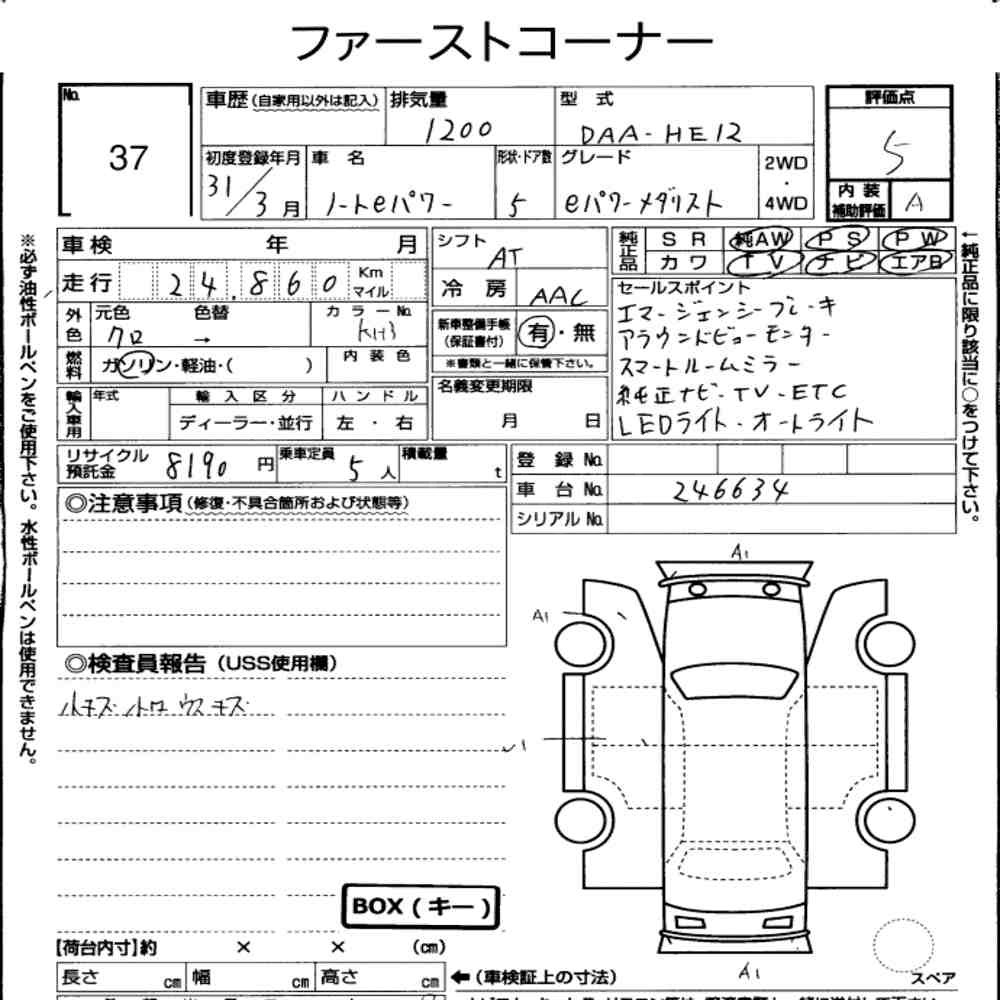 ファーストコーナー
No. 37
車歴(自家用以外は記入) 排気量 1200 型式 DAA-HE12
初度登録年月 31/3月 車名 ノートeパワー 形状・ドア数 5 グレード eパワーメダリスト 2WD・4WD
評価点 5
内装補助評価 A
※必ず油性ボールペンをご使用下さい。水性ボールペンは使用できません。
車検 年 月
走行 24.860 Km マイル
外色 元色 クロ 色替 → カラーNo. KH3
燃料 ガソリン・軽油・( ) 内装色
輸入車用 年式 輸入区分 ディーラー・並行 ハンドル 左・右
シフト AT
冷房 AAC
新車整備手帳(保証書付) 有・無
※書類と一緒に保管下さい。
名義変更期限
月 日
純正品 SR 純AW PS PW
カワ TV ナビ エアB
セールスポイント
エマージェンシーブレーキ
アラウンドビューモニター
スマートルームミラー
純正ナビ・TV・ETC
LEDライト・オートライト
←純正品に限り該当に○をつけて下さい。
リサイクル預託金 8190円 乗車定員 5人 積載量 t
登録No.
車台No. 246634
シリアルNo.
◎注意事項(修復・不具合箇所および状態等)
◎検査員報告(USS使用欄)
小キズ ウスキズ
A1
A1
A1
BOX(キー)
【荷台内寸】約 × × (cm)
長さ cm 幅 cm 高さ cm ←(車検証上の寸法)
スペア